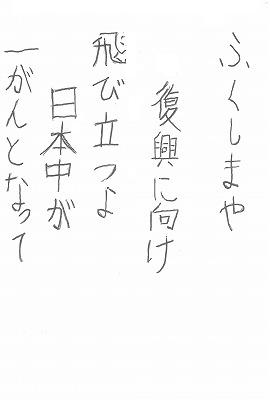 ふくしまや
復興に向け
飛び立つよ
日本中が
一がんとなって